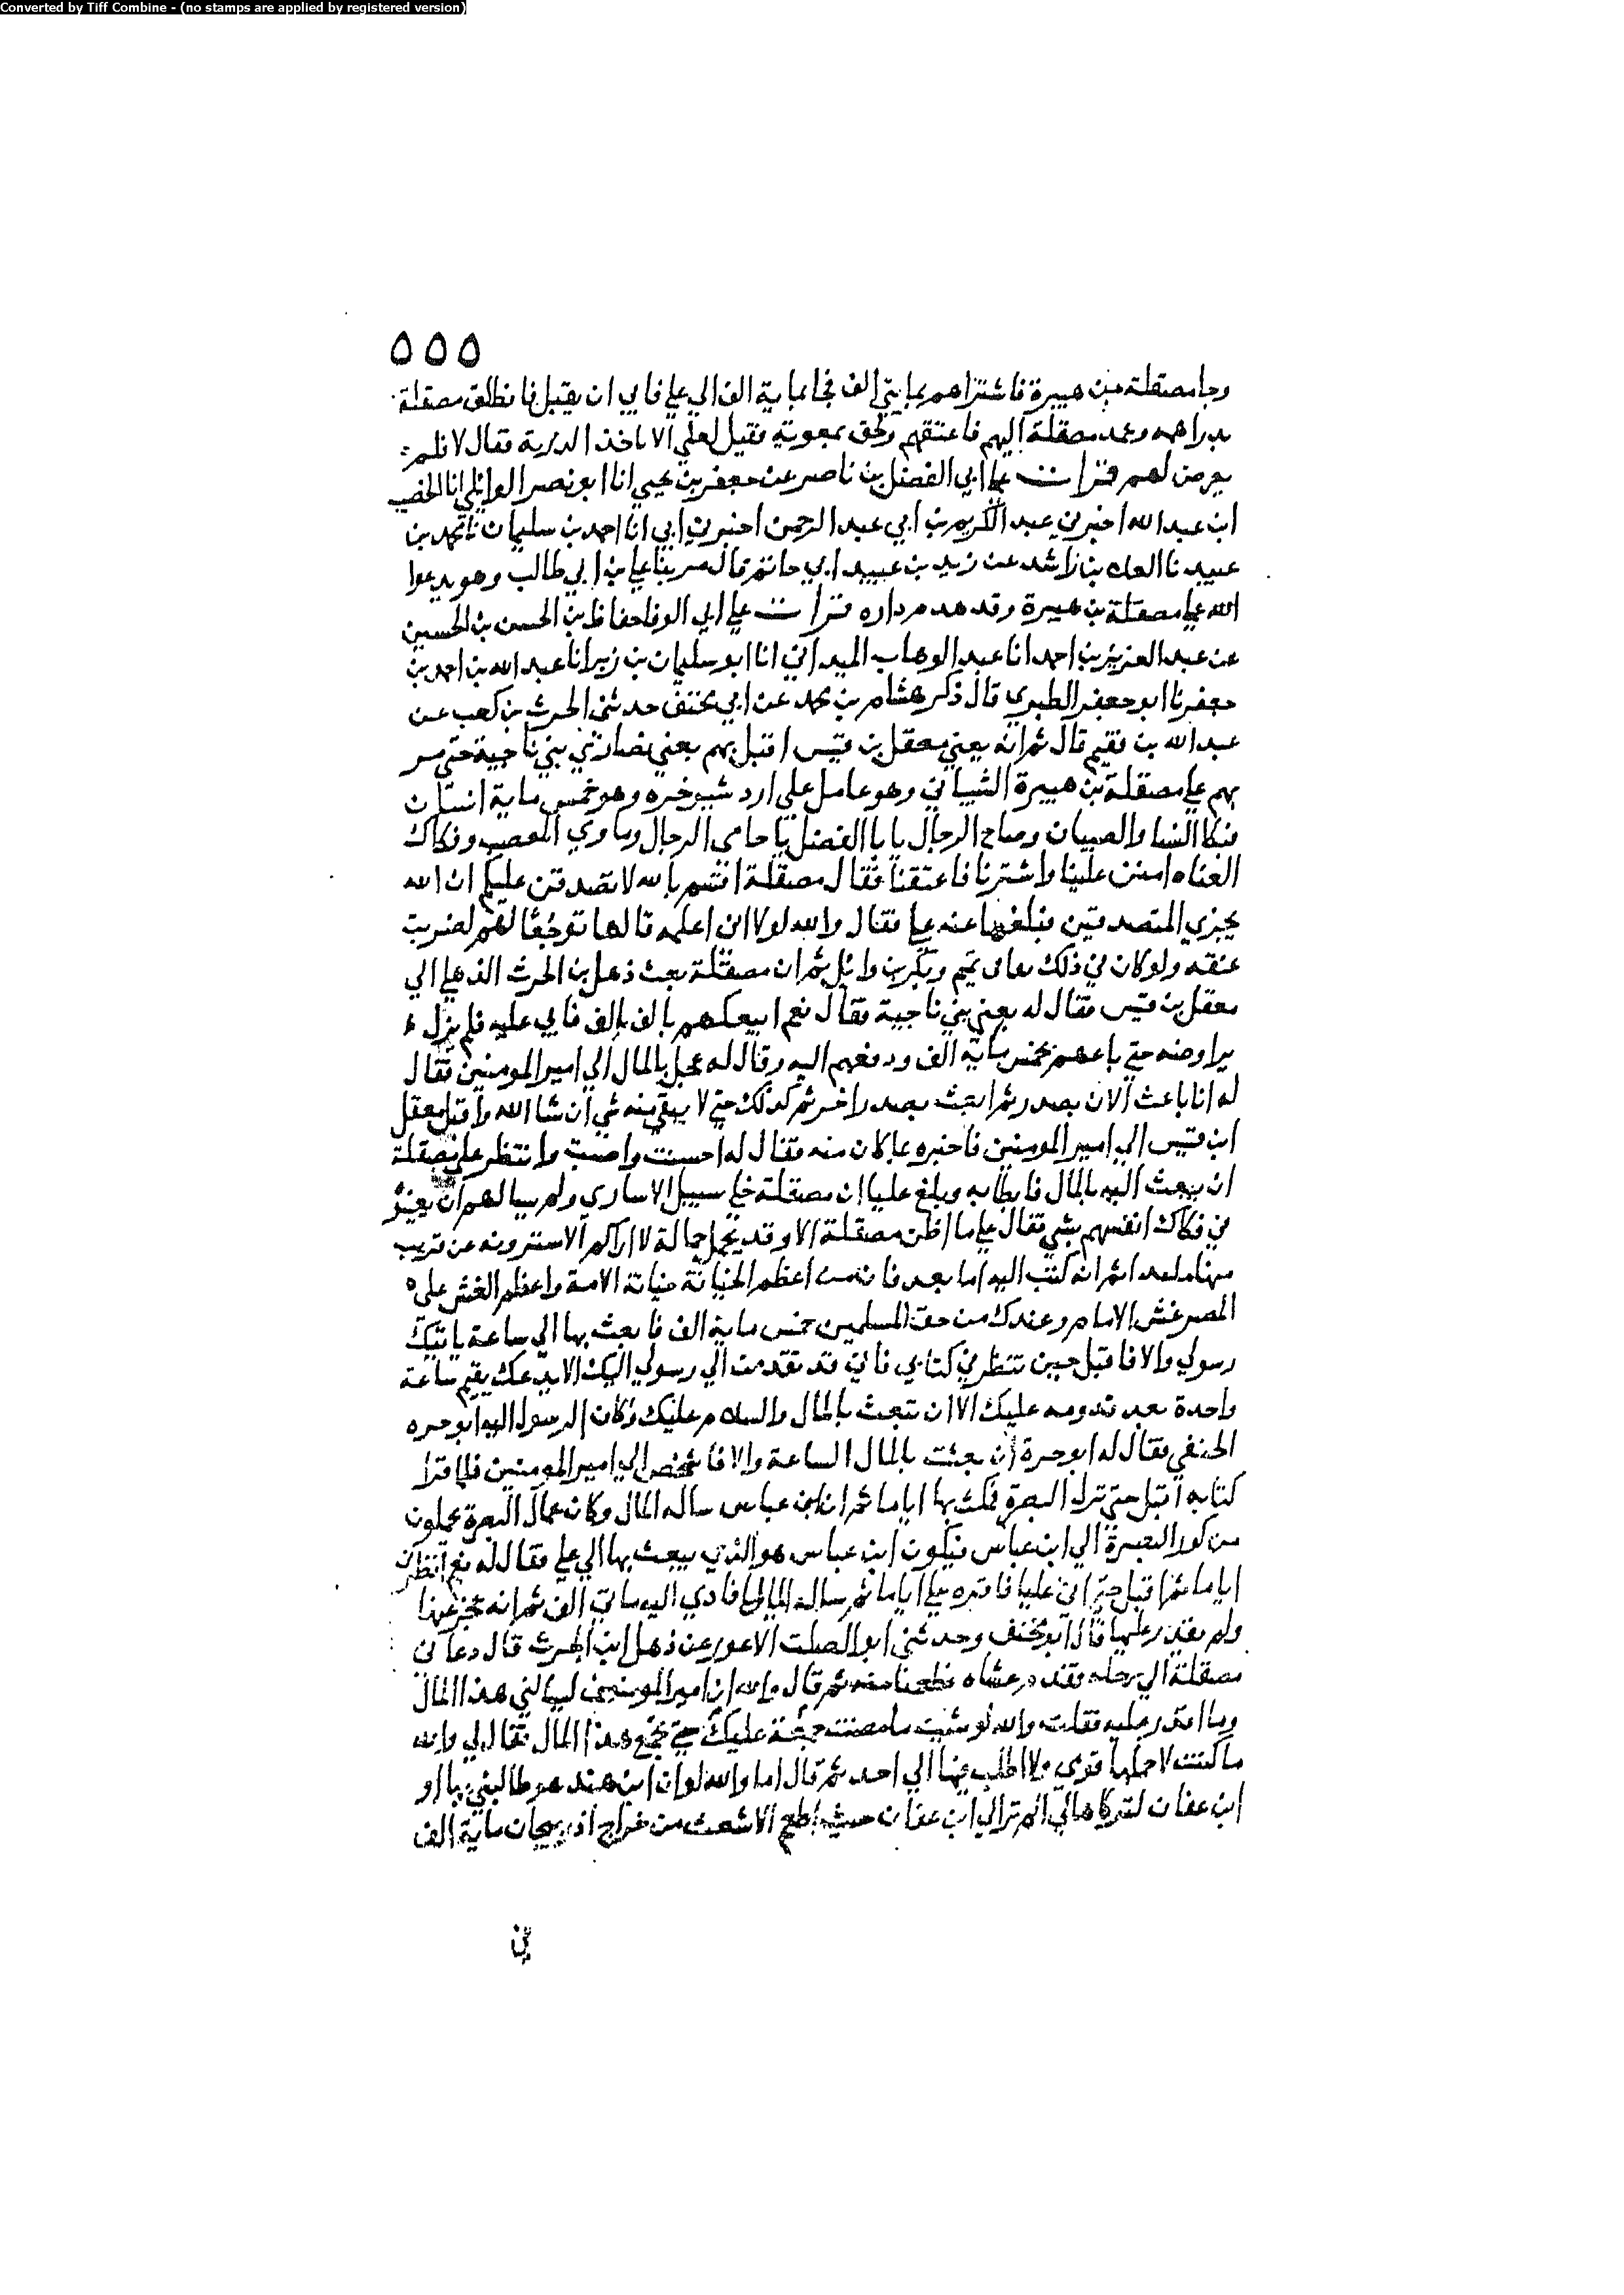 Converted by Tiff Combine - (no stamps are applied by registered version)
٥٥٥
وجا مصقلة بن هبيرة فاشتراهم بمايتي الف فجا بماية الف الي علي فابي ان يقبل فانطلق مصقلة
بدراهمه وعمد مصقلة اليهم فاعتقهم ولحق بمعوية فقيل لعلي الا تاخذ الذرية فقال لا فلم
يعرض لهم قرات على ابي الفضل بن ناصر عن جعفر بن يحيى انا ابو نصر الوائلي انا الخصيب
ابن عبد الله اخبرني عبد الكريم بن ابي عبد الرحمن اخبرني ابي انا احمد بن سليمان نا محمد بن
عبيد نا العلا بن راشد عن زيد بن عبيد ابي حاتم قال مر بنا علي بن ابي طالب وهو يدعوا
الله علي مصقلة بن هبيرة وقد هدم داره قرات علي ابي الوفا حفاظ بن الحسن بن الحسين
عن عبد العزيز بن احمد انا عبد الوهاب الميداني انا ابو سليمان بن زبر انا عبد الله بن احمد بن
جعفر نا ابو جعفر الطبري قال ذكر هشام بن محمد عن ابي مخنف حدثني الحرث بن كعب عن
عبد الله بن فقيم قال ثم انه يعني معقل بن قيس اقبل بهم يعني نصارى بني ناجية حتى مر
بهم علي مصقلة بن هبيرة الشيباني وهو عامل علي اردشيرخره وهو خمس ماية انسان
فبكا النسا والصبيان وصاح الرجال يا با الفضل يا حامى الرجال وماوي المعصب وفكاك
العناه امنن علينا واشترنا فاعتقنا فقال مصقلة اقسم بالله لا تصدقن عليكم ان الله
يجزي المتصدقين فبلغها عنه علي فقال والله لولا اني اعلمه قالها توجعا لهم لضربت
عنقه ولو كان في ذلك تفاني تميم وبكر بن وائل ثم ان مصقلة بعث ذهل بن الحرث الذهلي الي
معقل بن قيس فقال له بعني بني ناجية فقال نعم ابيعكهم بالف الف فابي عليه فلم يزل
يراوضه حتي باعهم بخمس ماية الف ودفعهم اليه وقال له عجل بالمال الي امير المومنين فقال
له انا باعث الان بصدر ثم ابعث بصدر اخر ثم كذلك حتي لا يبقى منه شي ان شا الله واقبل معقل
ابن قيس الي امير المومنين فاخبره بما كان منه فقال له احسنت واصبت وانتظر علي مصقلة
ان يبعث اليه بالمال فابطا به وبلغ عليا ان مصقلة خلي سبيل الاسارى ولم يسالهم ان يعينوه
في فكاك انفسهم بشي فقال علي ما اظن مصقلة الا وقد تحمل حمالة لا اراكم الا سترونه عن قريب
منها ملبدا ثم انه كتب اليه اما بعد فان من اعظم الخيانة خيانة الامة واعظم الغش على
المصر غش الامام وعندك من حق المسلمين خمس ماية الف فابعث بها الي ساعة ياتيك
رسولي والا فاقبل حين تنظر في كتابي فاني قد تقدمت الي رسولي اليك الا يدعك يقيم ساعة
واحدة بعد قدومه عليك الا ان تبعث بالمال والسلام عليك وكان الرسول اليه ابو حره
الحنفي فقال له ابو حرة ان بعثت بالمال الساعة والا فاشخص الي امير المومنين فلما قرا
كتابه اقبل حتي نزل البصرة فمكث بها اياما ثم ان ابن عباس ساله المال وكان عمال البصرة يحملون
من كور البصرة الي ابن عباس فيكون ابن عباس هو الذي يبعث بها الي علي فقال له نعم انظرني
اياما ثم اقبل حتي اتى عليا فاقره علي اياما ثم ساله المال فادي اليه مايتي الف ثم انه عجز عنها
ولم يقدر عليها قال ابو مخنف وحدثني ابو الصلت الاعور عن ذهل بن الحرث قال دعاني
مصقلة الي رحله فقدم عشاه فطعمنا منه ثم قال والله ان امير المومنين ليسالني هذا المال
وما اقدر عليه فقلت والله لو شيت ما مضت جمعة عليك حتي تجمع هذا المال فقال لي والله
ما كنت لاحملها قومي ولا اطلب فيها الي احد ثم قال اما والله لو ان ابن هند هو طالبني بها او
ابن عفان لتركاها لي الم تر الي ابن عفان حيث اطعم الاشعث من خراج اذربيجان ماية الف
في